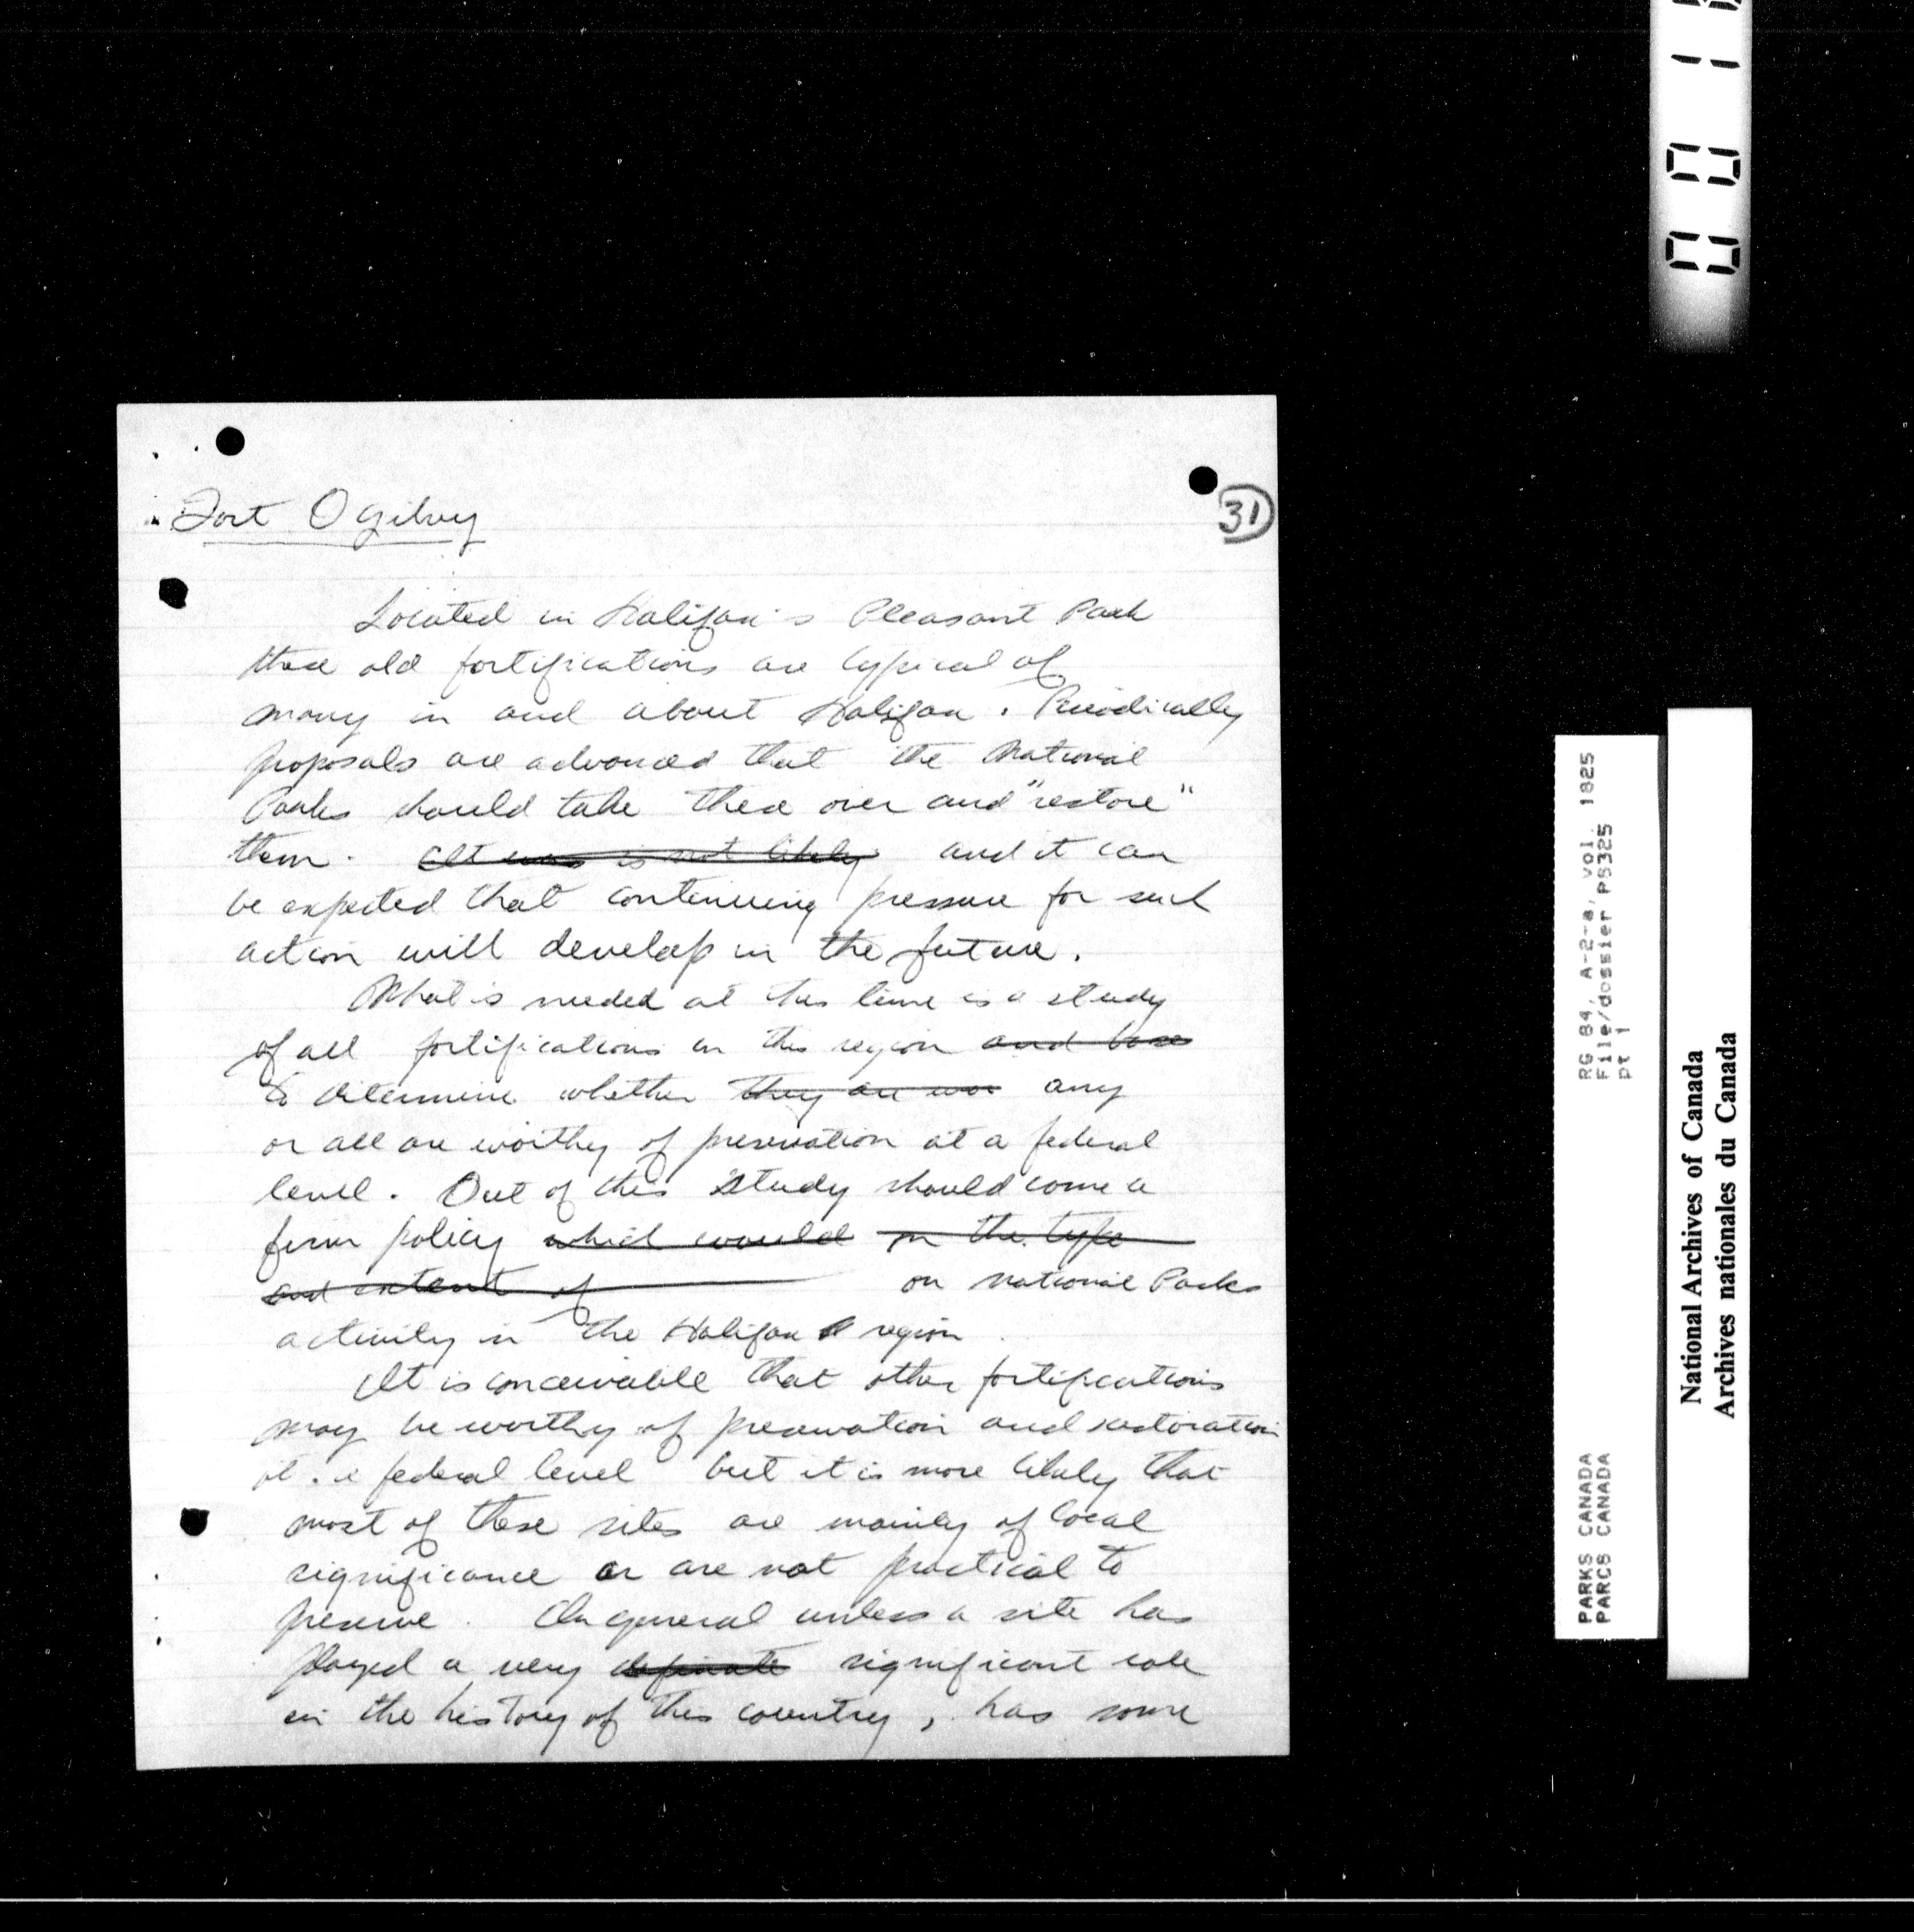 Fort Ogilvy
31
Located in Halifax's Pleasant Park
these old fortifications are typical of
many in and about Halifax. Periodically
proposals are advanced that the National
Parks should take these over and "restore"
them. It was is not likely and it can
be expected that continuing pressure for such
action will develop in the future.
What is needed at this time is a study
of all fortifications in this region and base
to determine whether they are wor any
or all are worthy of preservation at a federal
level. Out of this study should come a
firm policy which would on the type
and extent of on National Parks
activity in the Halifax region.
It is conceivable that other fortifications
may be worthy of preservation and restoration
at a federal level but it is more likely that
most of these sites are mainly of local
significance or are not practical to
preserve. In general unless a site has
played a very definate significant role
in the history of this country, has some
RG 84, A-2-a, vol. 1825
File/dossier PS325
pt 1
PARKS CANADA
PARCS CANADA
National Archives of Canada
Archives nationales du Canada